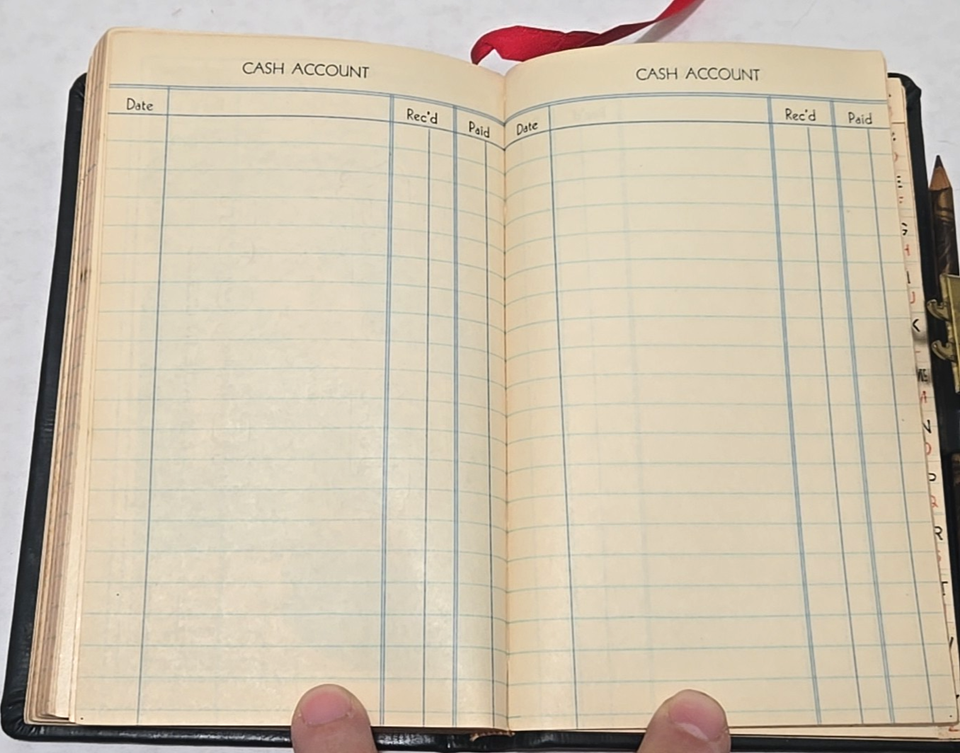 CASH ACCOUNT
Date Rec'd Paid
CASH ACCOUNT
Date Rec'd Paid
G
H
J
K
N
O
P
R